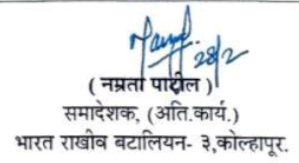 28/2
( नम्रता पाटील )
समादेशक, (अति.कार्य.)
भारत राखीव बटालियन- ३,कोल्हापूर.